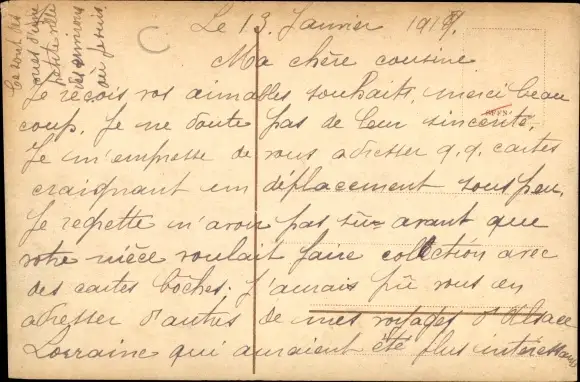 Ce sont des
vues d'une
petite ville
des environs
où je suis
Le 13 Janvier 191
Ma chère cousine
Je reçois vos aimables souhaits, merci beau
coup. Je ne doute pas de leur sincérité.
Je m'empresse de vous adresser q.q. cartes
craignant un déplacement sous peu.
Je regrette n'avoir pas su avant que
votre nièce voulait faire collection avec
des cartes bôches. J'aurais pû vous en
adresser d'autres de mes voyages d'Alsace
Lorraine qui auraient été plus intéressants